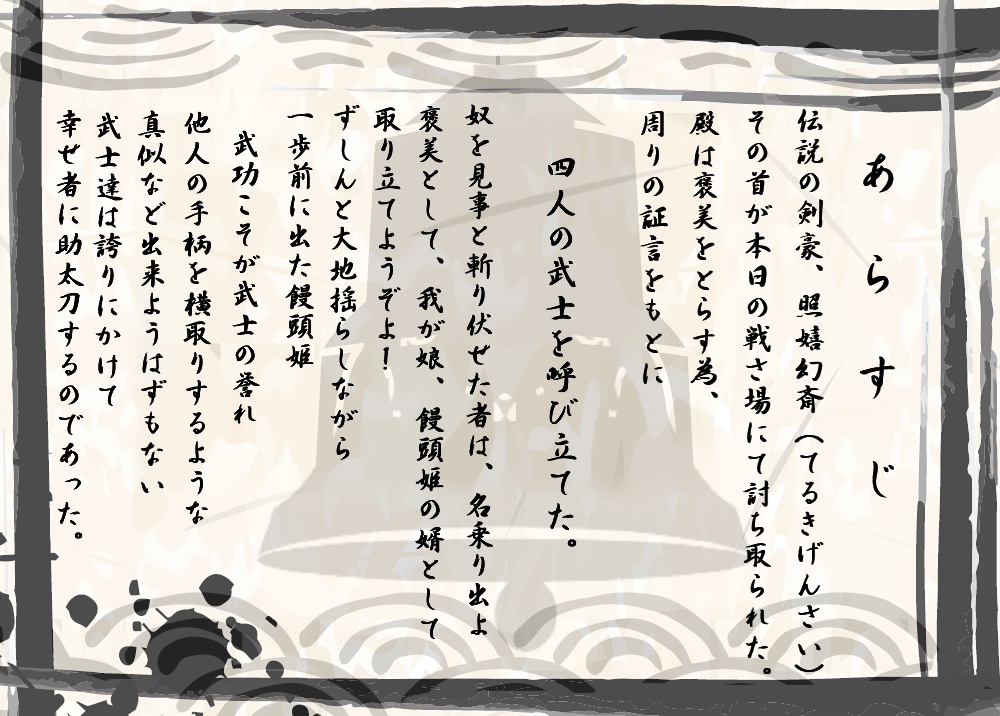 あらすじ
伝説の剣豪、照嬉幻斎（てるきげんさい）
その首が本日の戦さ場にて討ち取られた。
殿は褒美をとらす為、
周りの証言をもとに
四人の武士を呼び立てた。
奴を見事と斬り伏せた者は、名乗り出よ
褒美として、我が娘、饅頭姫の婿として
取り立てようぞよ！
ずしんと大地揺らしながら
一歩前に出た饅頭姫
武功こそが武士の誉れ
他人の手柄を横取りするような
真似など出来ようはずもない
武士達は誇りにかけて
幸せ者に助太刀するのであった。